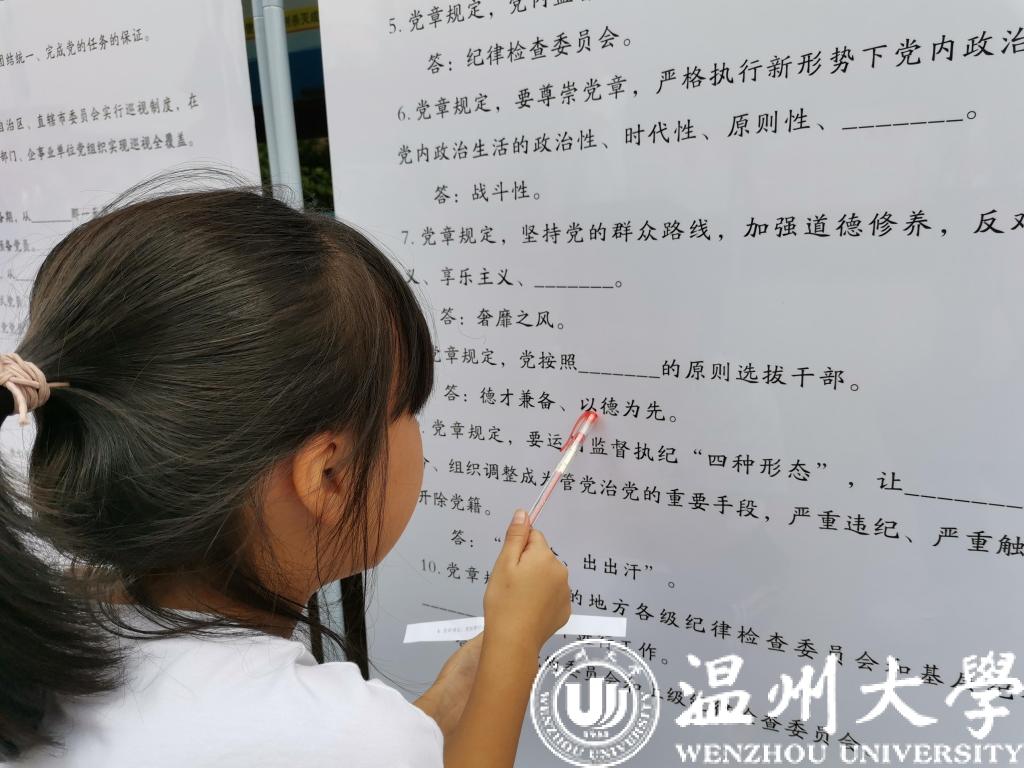 团结统一、完成党的任务的保证。
自治区、直辖市委员会实行巡视制度，在
部门、企事业单位党组织实现巡视全覆盖。
5. 党章规定，党内监
答：纪律检查委员会。
6. 党章规定，要尊崇党章，严格执行新形势下党内政治
党内政治生活的政治性、时代性、原则性、_______。
答：战斗性。
7. 党章规定，坚持党的群众路线，加强道德修养，反对
义、享乐主义、_______。
答：奢靡之风。
党章规定，党按照_______的原则选拔干部。
答：德才兼备、以德为先。
党章规定，要运 监督执纪“四种形态”，让_______
组织调整成为管党治党的重要手段，严重违纪、严重触
开除党籍。
答：“ 、出出汗”。
10. 党章 的地方各级纪律检查委员会和基层
作。
委员会和上级纪律检查委员会
温州大学
WENZHOU UNIVERSITY